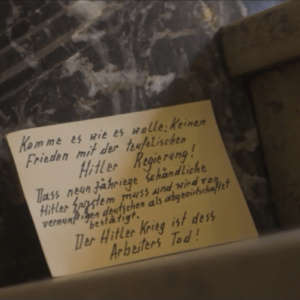 Komme es wie es wolle; Keinen
Frieden mit der teuflischen
Hitler Regierung!
Dass neunjähriege schändliche
Hitler System muss und wird von
vernunftigen deutschen als abgewirtschaftet
bestätigt.
Der Hitler Krieg ist dess
Arbeiters Tod!